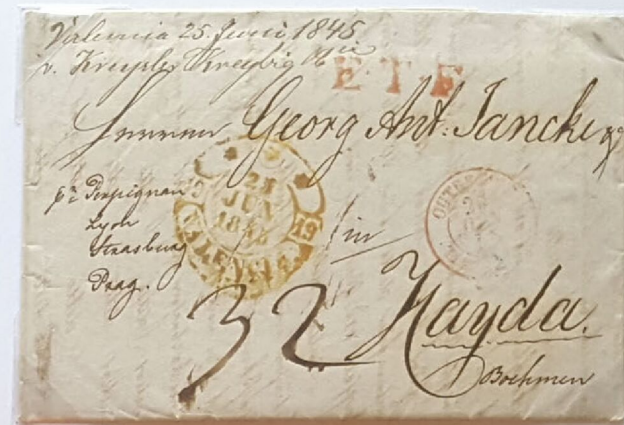 Valencia 25. Juni 1845
v. Kreybig Cie
E.T.F.
Herren Georg Ant: Jancke &
pr Perpignan
Lyon
Strasburg
Prag.
25
JUN
1845
VALENCIA
19
in
32
Hayda.
Boehmen